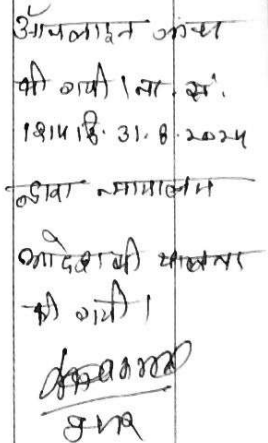 ऑनलाइन जांच
की गयी । ना. सं.
दि. 31.8.2024
द्वारा न्यायालय
आदेश की पालना
की गयी ।